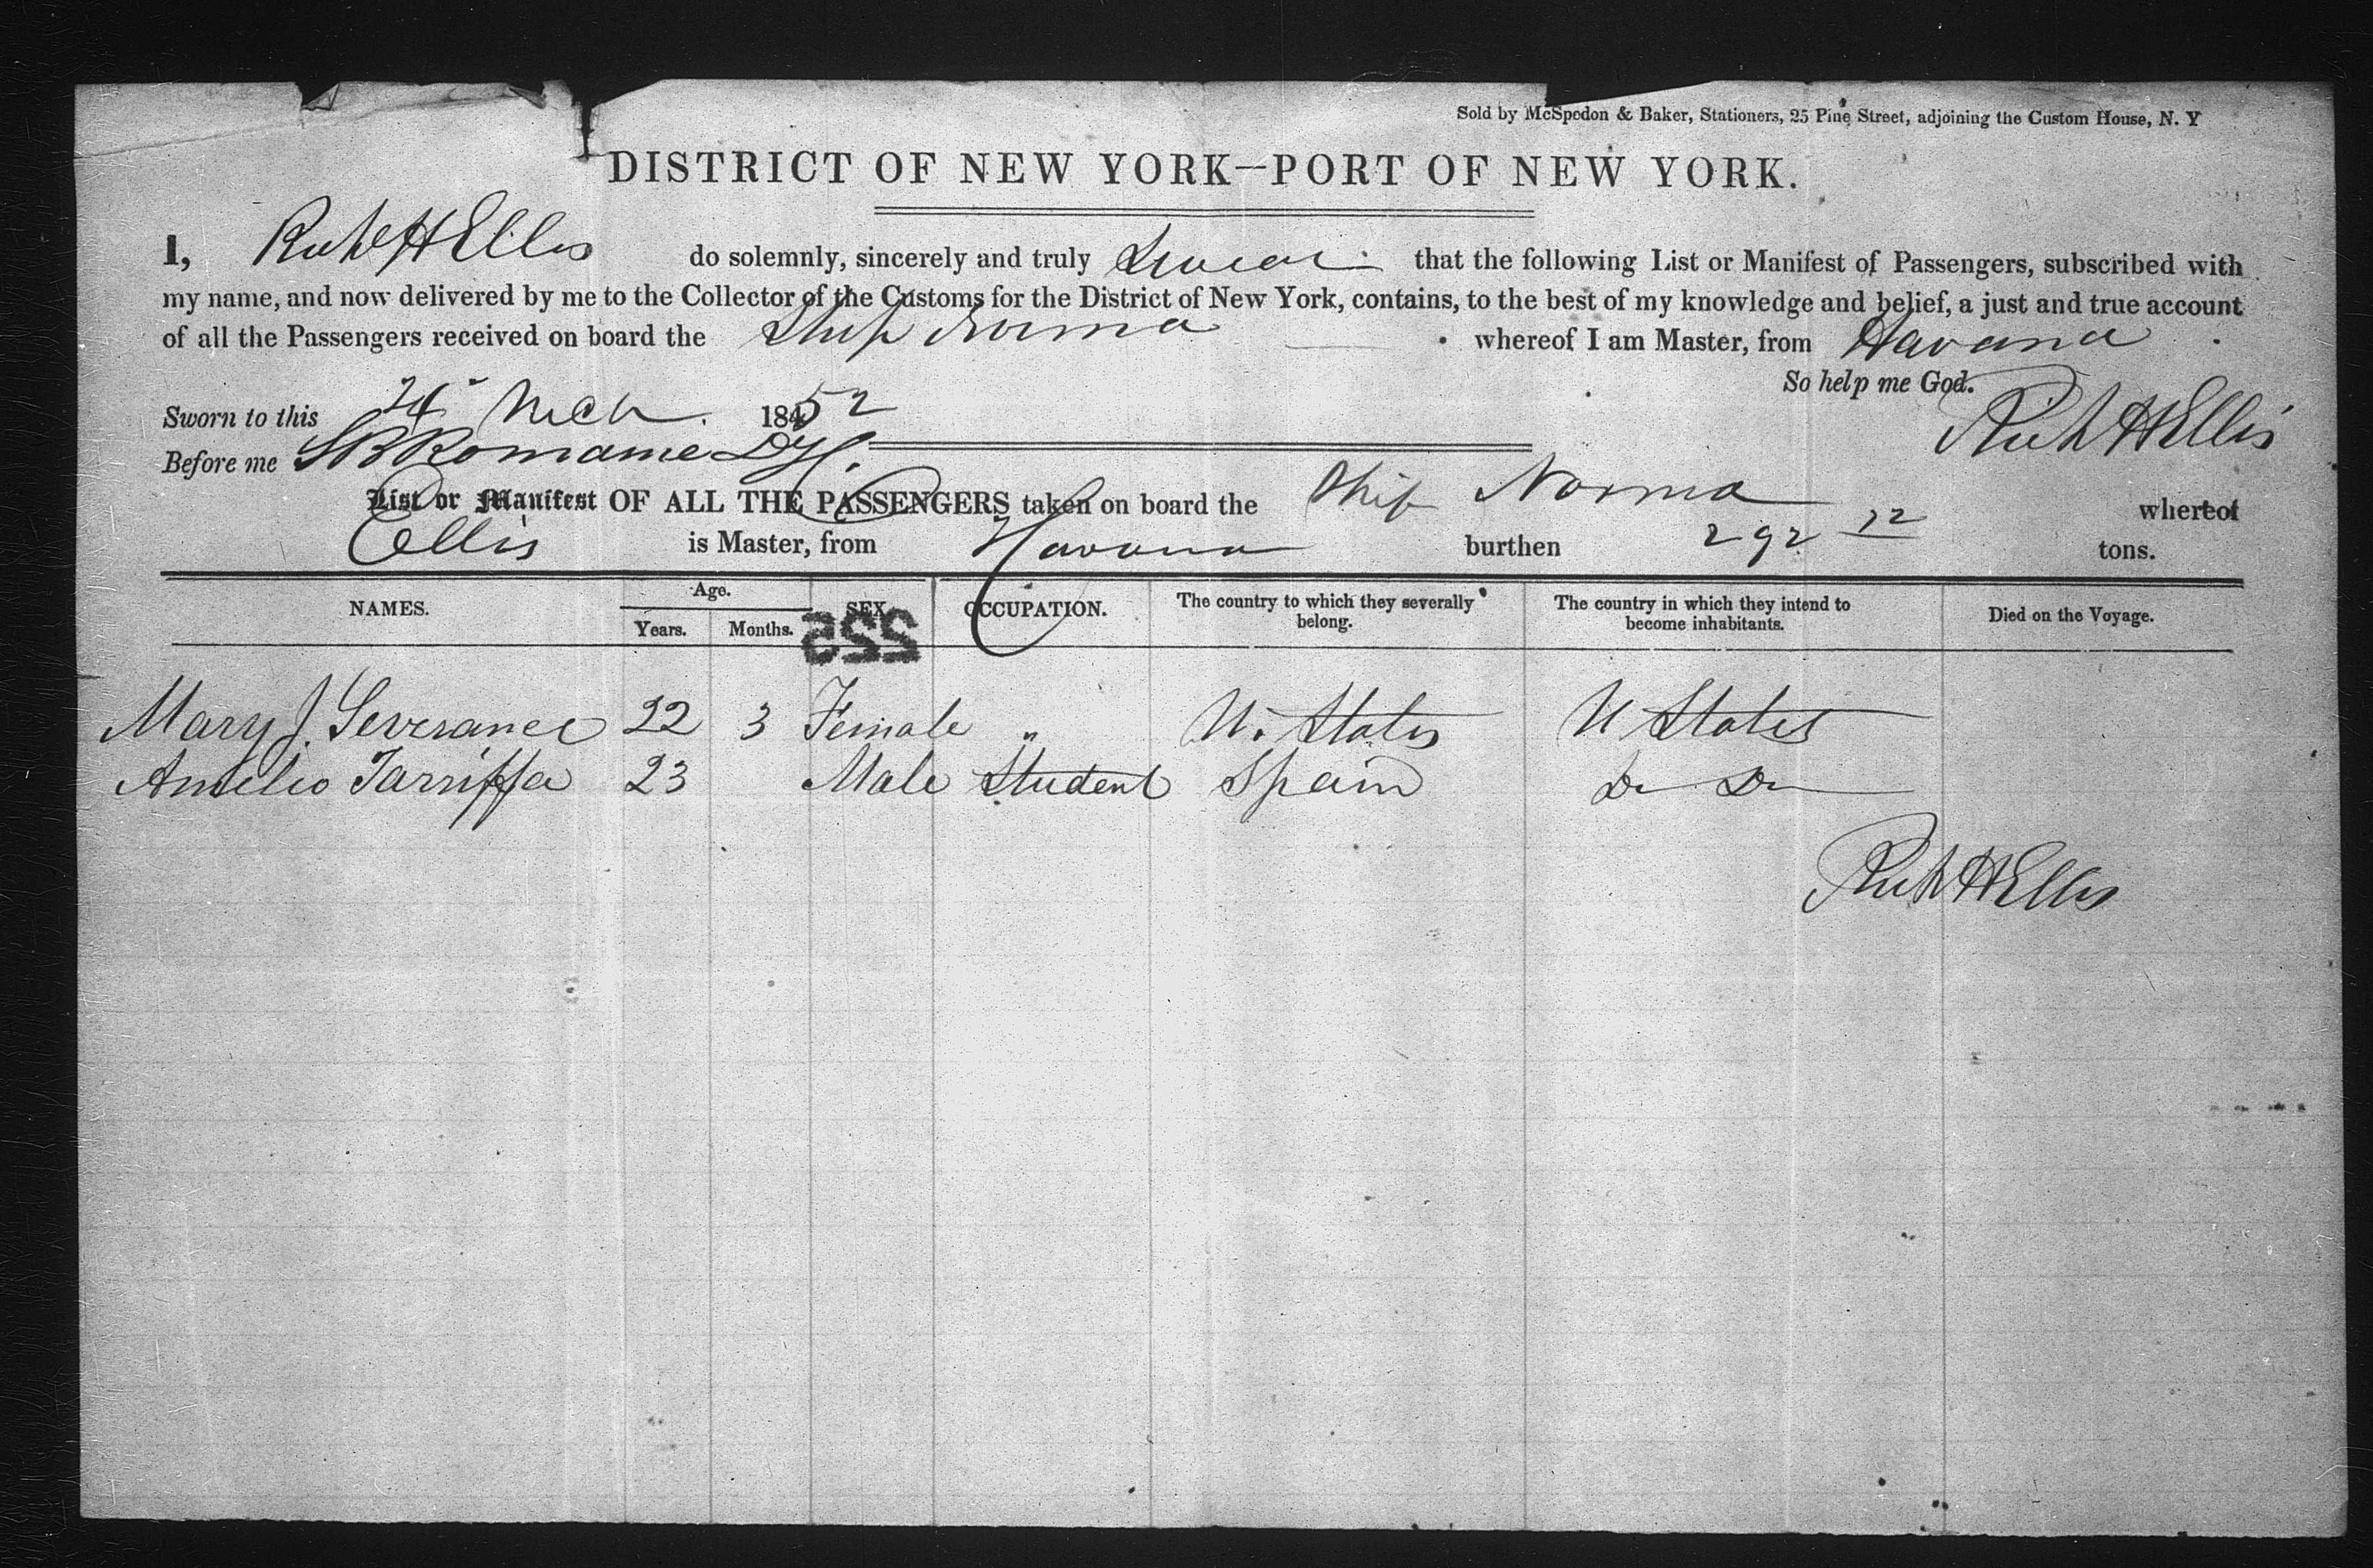 Sold by McSpedon & Baker, Stationers, 25 Pine Street, adjoining the Custom House, N. Y
DISTRICT OF NEW YORK—PORT OF NEW YORK.
I, Rich H Ellis do solemnly, sincerely and truly Swear that the following List or Manifest of Passengers, subscribed with
my name, and now delivered by me to the Collector of the Customs for the District of New York, contains, to the best of my knowledge and belief, a just and true account
of all the Passengers received on board the Ship Norma whereof I am Master, from Havana
So help me God.
Sworn to this Mch 1852
Rich H Ellis
Before me
List or Manifest OF ALL THE PASSENGERS taken on board the Ship Norma whereof
Ellis is Master, from Havana burthen 292 tons.
NAMES. Age. Years. Months. SEX OCCUPATION. The country to which they severally belong. The country in which they intend to become inhabitants. Died on the Voyage.
255
Mary J. Severance 22 3 Female " U. States U States
Amelio Tarriffa 23 Male Student Spain Do Do
Rich H Ellis